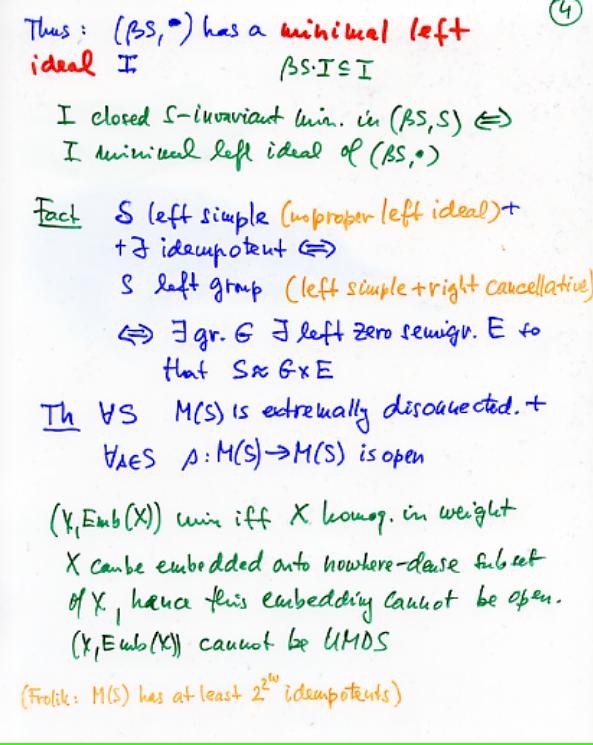 ④
Thus : (βS,•) has a minimal left
ideal I      βS·I⊆I
I closed S-invariant min. in (βS,S) ⇔
I minimal left ideal of (βS,•)
Fact S left simple (no proper left ideal)+
+∃ idempotent ⇔
S left group (left simple+right cancellative)
⇔ ∃ gr. G ∃ left zero semigr. E so
that S≈ G×E
Th ∀S M(S) is extremally disconnected. +
∀s∈S s: M(S)→M(S) is open
(X,Emb(X)) min iff X homog. in weight
X can be embedded onto nowhere-dense subset
of X, hence this embedding cannot be open.
(X,Emb(X)) cannot be UMDS
(Frolik: M(S) has at least 2^2^ω idempotents)